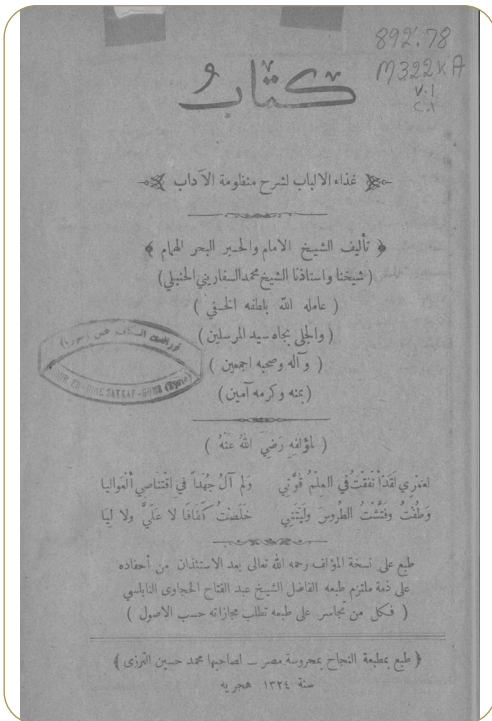 892.78
M322kA
V.1
C.1
كتاب
غذاء الالباب لشرح منظومة الآداب
﴿ تأليف الشيخ الامام والحبر البحر الهمام ﴾
( شيخنا واستاذنا الشيخ محمد السفاريني الحنبلي )
( عامله الله بلطفه الخفي )
( والجلى بجاه سيد المرسلين )
( وآله وصحبه اجمعين )
( بمنه وكرمه آمين )
( لمؤلفه رَضِيَ اللهُ عَنهُ )
لعَمْري لَقَدْ أنفَقْتُ في العِلْمُ قُوَّتِي وَلم آلُ جُهْداً في اقْتنَاصِي ألْعَواليا
وَطُفْتُ وَفَتَّشْتُ الطُروسَ وَلَيْتَنِي خَلَصْتُ كَفَافَا لا عَلَيَّ ولا ليا
طبع على نسخة المؤلف رحمه الله تعالى بعد الاستئذان من أحفاده
على ذمة ملتزم طبعه الفاضل الشيخ عبد الفتاح الحجاوى النابلسي
( فكل من تجاسر على طبعه تطلب مجازاته حسب الاصول )
﴿ طبع بمطبعة النجاح بمحروسة مصر – لصاحبها محمد حسين الترزى ﴾
سنة ١٣٢٤ هجريه